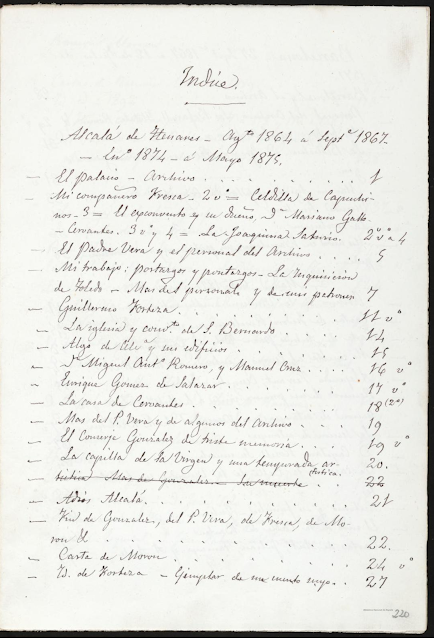 Indice.
Alcalá de Henares - Ag.to 1864 á Sept.e 1867-
- En.o 1874 - á Mayo 1875.
- El palacio - Archivo . . . . . . . 1
- Mi compañero Fresca - 2 v.o = Celdilla de Capuchi-
nos - 3 = El exconvento y su dueño, D.n Mariano Gallo-
- Cervantes. 3 v.o y 4 = La Joaquina Saturio. 2 v.o á 4
- El Padre Vera y el personal del Archivo . . 5
- Mi trabajo: portazgos y pontazgos - La inquisicion
de Toledo - Mas del personal y de mis patronas 7
- Guillermo Forteza . . . . . . . 11 v.o
- La iglesia y conv.to de S. Bernardo . . . 14
- Algo de y sus edificios . . . . . 15
- D.n Miguel Ant.o Romero, y Manuel Cruz . . . 16 v.o
- Enrique Gomez de Salazar . . . . . 17 v.o
- La casa de Cervantes . . . . . . 18 (2.o)
- Mas del P. Vera y de algunos del Archivo . . 19
- El Conserje Gonzalez de triste memoria . . . 19 v.o
- La capilla de la Virgen y una temporada ar- 20.
tística
- Mas de Gonzalez - Su muerte . 22
- Adios Alcalá . . . . . . . 21
- Fin de Gonzalez, del P. Vera, de Fresca, de Mo-
ron &. . . . . . . . 22.
- Carta de Moron . . . . . . . 24 v.o
- Id. de Forteza - Ejemplar de un cuento suyo . . 27
220